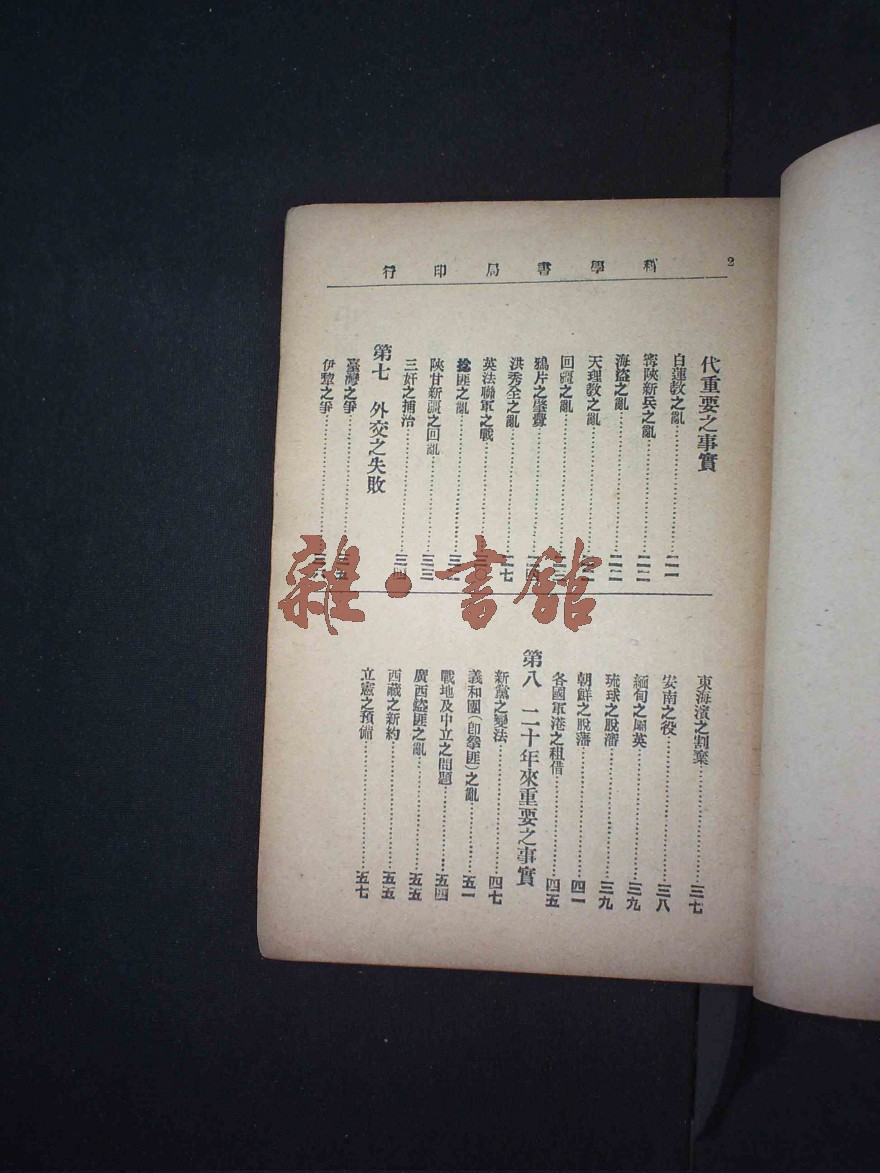 2
科學書局印行
代重要之事實
白蓮教之亂……二一
寧陝新兵之亂……二二
海盜之亂……二二
天理教之亂……
回疆之亂……
鴉片之釁釁……
洪秀全之亂……二七
英法聯軍之戰……
捻匪之亂……三一
陝甘新疆之回亂……三三
三奸之捕治……三四
第七 外交之失敗
臺灣之爭……三五
伊犁之爭……三六
東海濱之割棄……三七
安南之役……三八
緬甸之屬英……三九
琉球之脫藩……三九
朝鮮之脫藩……四一
各國軍港之租借……四五
第八 二十年來重要之事實
新黨之變法……四七
義和團(卽拳匪)之亂……五一
戰地及中立之問題……五四
廣西盜匪之亂……五五
西藏之新約……五五
立憲之預備……五七
雜·書館